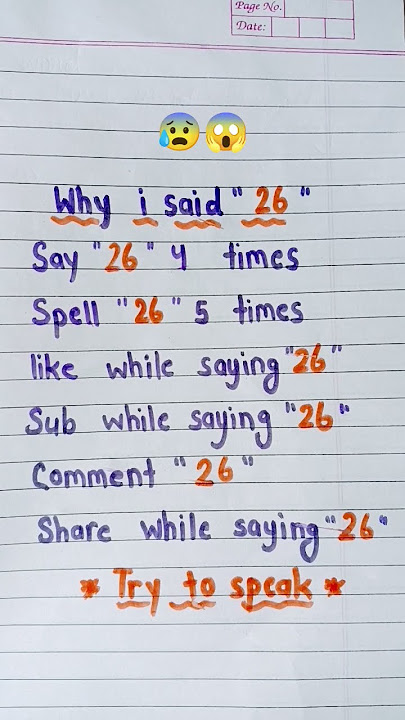 Page No.
Date:
😰😱
Why i said "26"
Say "26" 4 times
Spell "26" 5 times
like while saying "26"
Sub while saying "26"
Comment "26"
Share while saying "26"
* Try to speak *